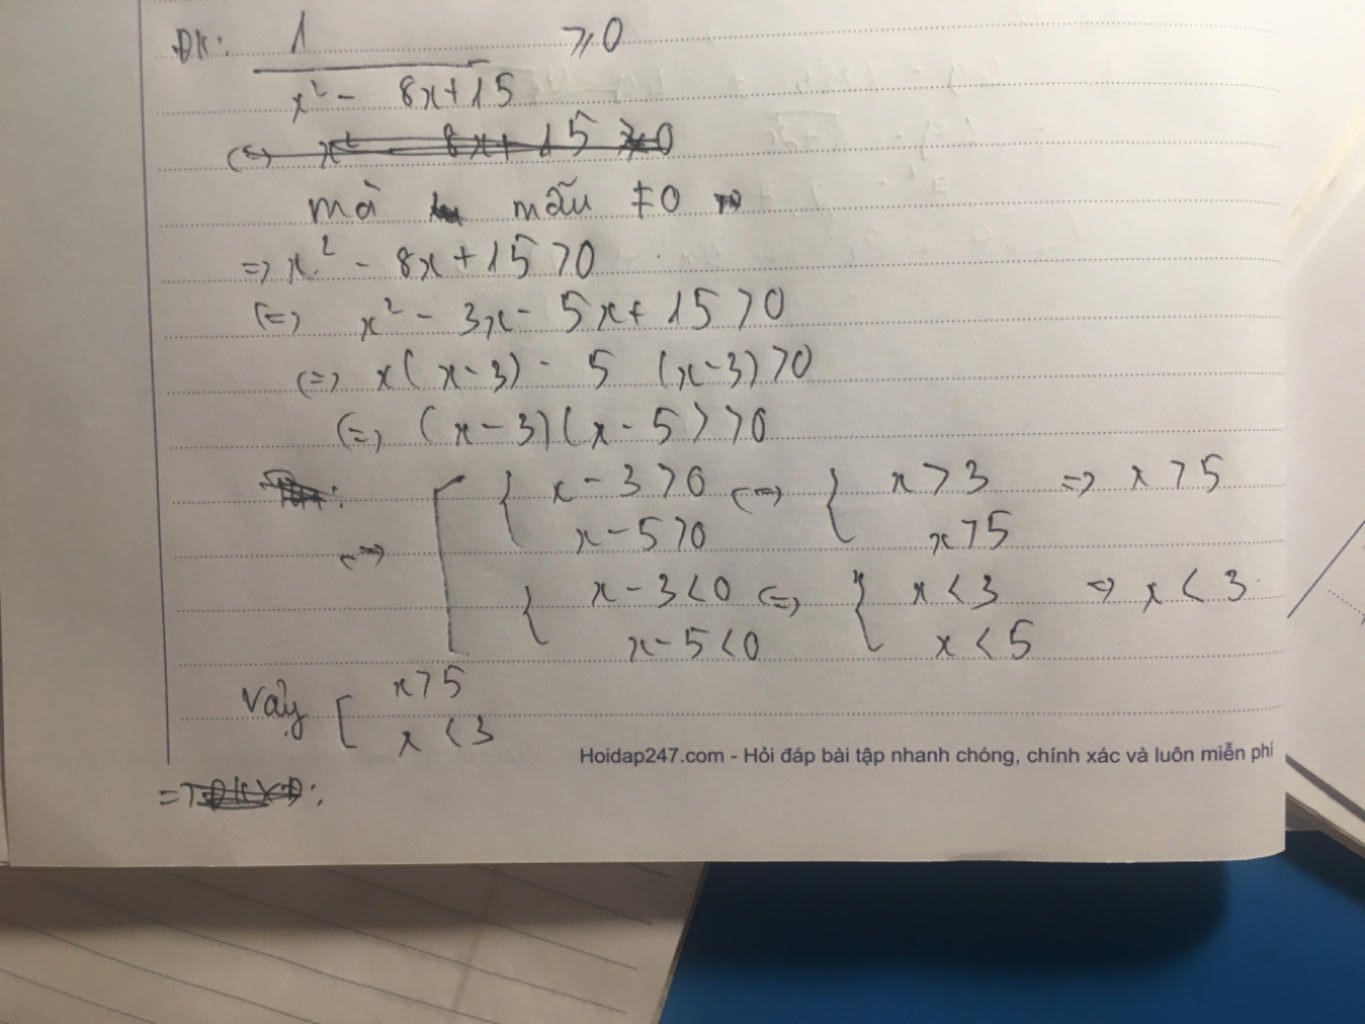 ĐK: 1 / x² - 8x+15 ⩾0
(=) x² 8x+15 ⩾0
mà mẫu ≠0
=> x² - 8x+15>0
(=) x² - 3x- 5x+15>0
(=) x(x-3) - 5 (x-3)>0
(=) (x-3)(x-5)>0
<=> [ { x-3>0 <=> { x>3 => x>5
x-5>0 x>5
{ x-3<0 <=> { x<3 => x<3
x-5<0 x<5
Vậy [ x>5
x<3
Hoidap247.com - Hỏi đáp bài tập nhanh chóng, chính xác và luôn miễn phí